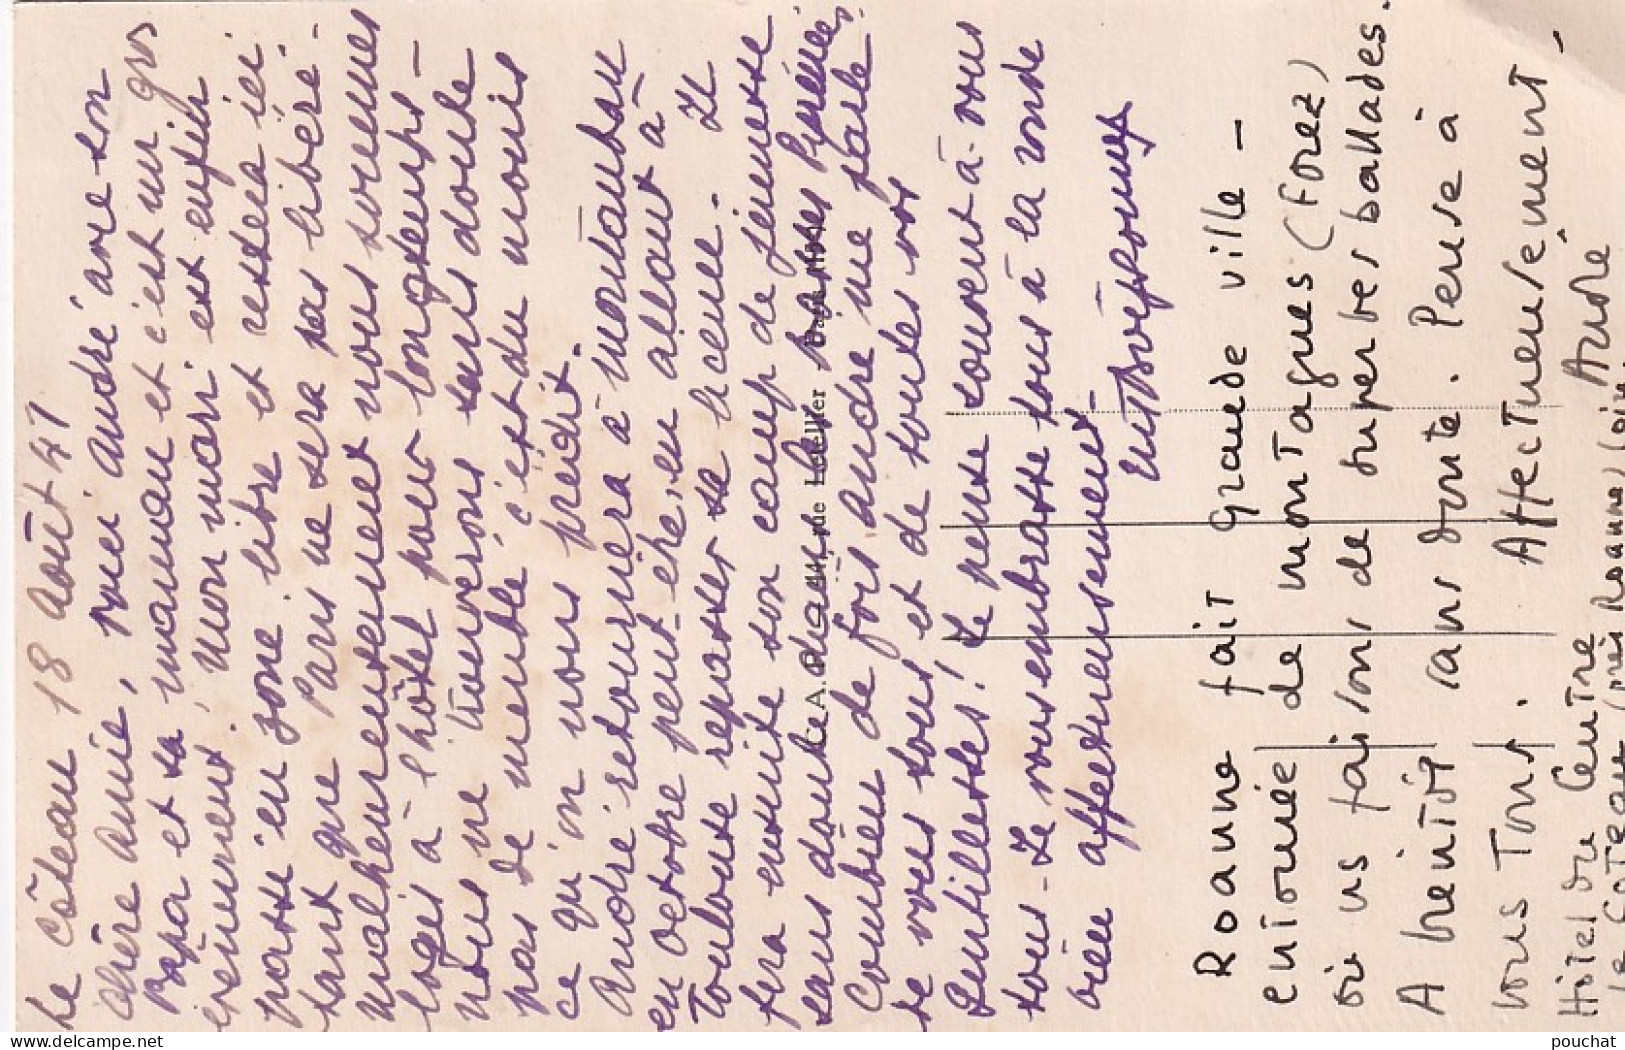 Le Côteau 18 Août 41
Chère Amie, Voici André avec son
Papa et sa maman et c'est un gros
évènement. Mon mari est enfin
passé en zone libre et restera ici
tant que Paris ne sera pas libéré -
malheureusement nous sommes
logés à l'hôtel pour longtemps -
nous ne trouverons sans doute
pas de meublé c'est du moins
ce qu'on nous prédit.
André retournera à Montauban
en octobre peut-être, en allant à
Toulouse repasser sa licence. Il
fera ensuite son camp de jeunesse
sans doute dans les basses Pyrénées.
Combien de fois André me parle
de vous tous et de toutes vos
gentillesses! Je pense souvent à vous
tous - Je vous embrasse tous à la ronde
bien affectueusement -
A. de Loeillier
Roanne fait Grande ville -
entourée de montagnes (Forez)
où ns faisons de superbes ballades.
A bientôt sans doute. Pense à
vous Tous. Affectueusement -
André
Hôtel du Centre
Le Coteau (près Roanne) Loire
www.delcampe.net
pouchat